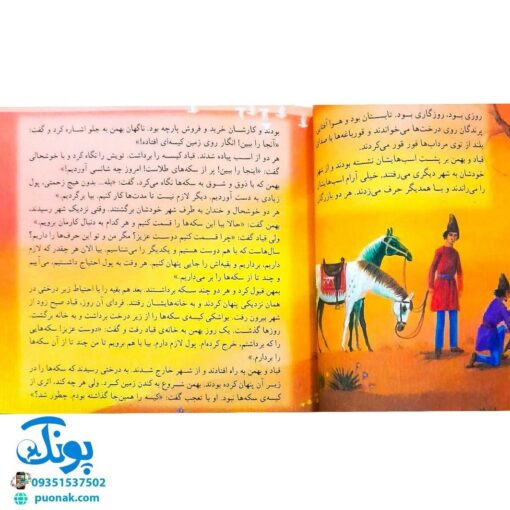 روزی بود، روزگاری بود. تابستان بود و هوا آفتابی
پرندگان روی درخت‌ها می‌خواندند و قورباغه‌ها با صدای
بلند از توی مرداب‌ها قور قور می‌کردند.
قباد و بهمن بر پشت اسب‌هایشان نشسته بودند و از شهر
خودشان به شهر دیگری می‌رفتند. خیلی آرام اسب‌هایشان
را می‌راندند و با همدیگر حرف می‌زدند. هر دو بازرگان
بودند و کارشان خرید و فروش پارچه بود. ناگهان بهمن به جلو اشاره کرد و گفت:
«آنجا را ببین! انگار روی زمین کیسه‌ای افتاده!»
هر دو از اسب پیاده شدند. قباد کیسه را برداشت. تویش را نگاه کرد و با خوشحالی
گفت: «اینجا را ببین! پر از سکه‌های طلاست! امروز چه شانسی آوردیم!»
بهمن که با ذوق و شوق به سکه‌ها نگاه می‌کرد، گفت: «بله.. بدون هیچ زحمتی، پول
زیادی به دست آوردیم. دیگر لازم نیست تا مدت‌ها کار کنیم. بیا برگردیم.»
هر دو خوشحال و خندان به طرف شهر خودشان برگشتند. وقتی نزدیک شهر رسیدند،
بهمن گفت: «حالا بیا این سکه‌ها را قسمت کنیم و هر کدام به دنبال کارمان برویم.»
ولی قباد گفت: «چرا قسمت کنیم دوست عزیز؟ مگر من و تو این حرف‌ها را داریم؟
سال‌هاست که با هم دوستیم و یکدیگر را می‌شناسیم. بیا الان هر چقدر که لازم
داریم، برداریم و بقیه‌اش را جایی پنهان کنیم. هر وقت به پول احتیاج داشتیم، می‌آییم
و چند تا از سکه‌ها را بر می‌داریم.»
بهمن قبول کرد و هر دو چند سکه برداشتند. بعد هم بقیه را با احتیاط زیر درختی در
همان نزدیکی پنهان کردند و به خانه‌هایشان رفتند. فردای آن روز، قباد صبح زود از
شهر بیرون رفت. یواشکی کیسه‌ی سکه‌ها را از زیر درخت برداشت و به خانه برگشت.
روزها گذشت. یک روز بهمن به خانه‌ی قباد رفت و گفت: «دوست عزیز! سکه‌هایی
را که برداشتم، خرج کرده‌ام. پول لازم دارم. بیا با هم برویم تا من چند تا از آن سکه‌ها
را بردارم.»
قباد و بهمن به راه افتادند و از شهر خارج شدند. به درختی رسیدند که سکه‌ها را در
زیر آن پنهان کرده بودند. بهمن شروع به کندن زمین کرد. ولی هر چه کند، اثری از
کیسه‌ی سکه‌ها نبود. او با تعجب گفت: «کیسه را همین‌جا گذاشته بودم. چطور شد؟»
پونک
09351537502
puonak.com